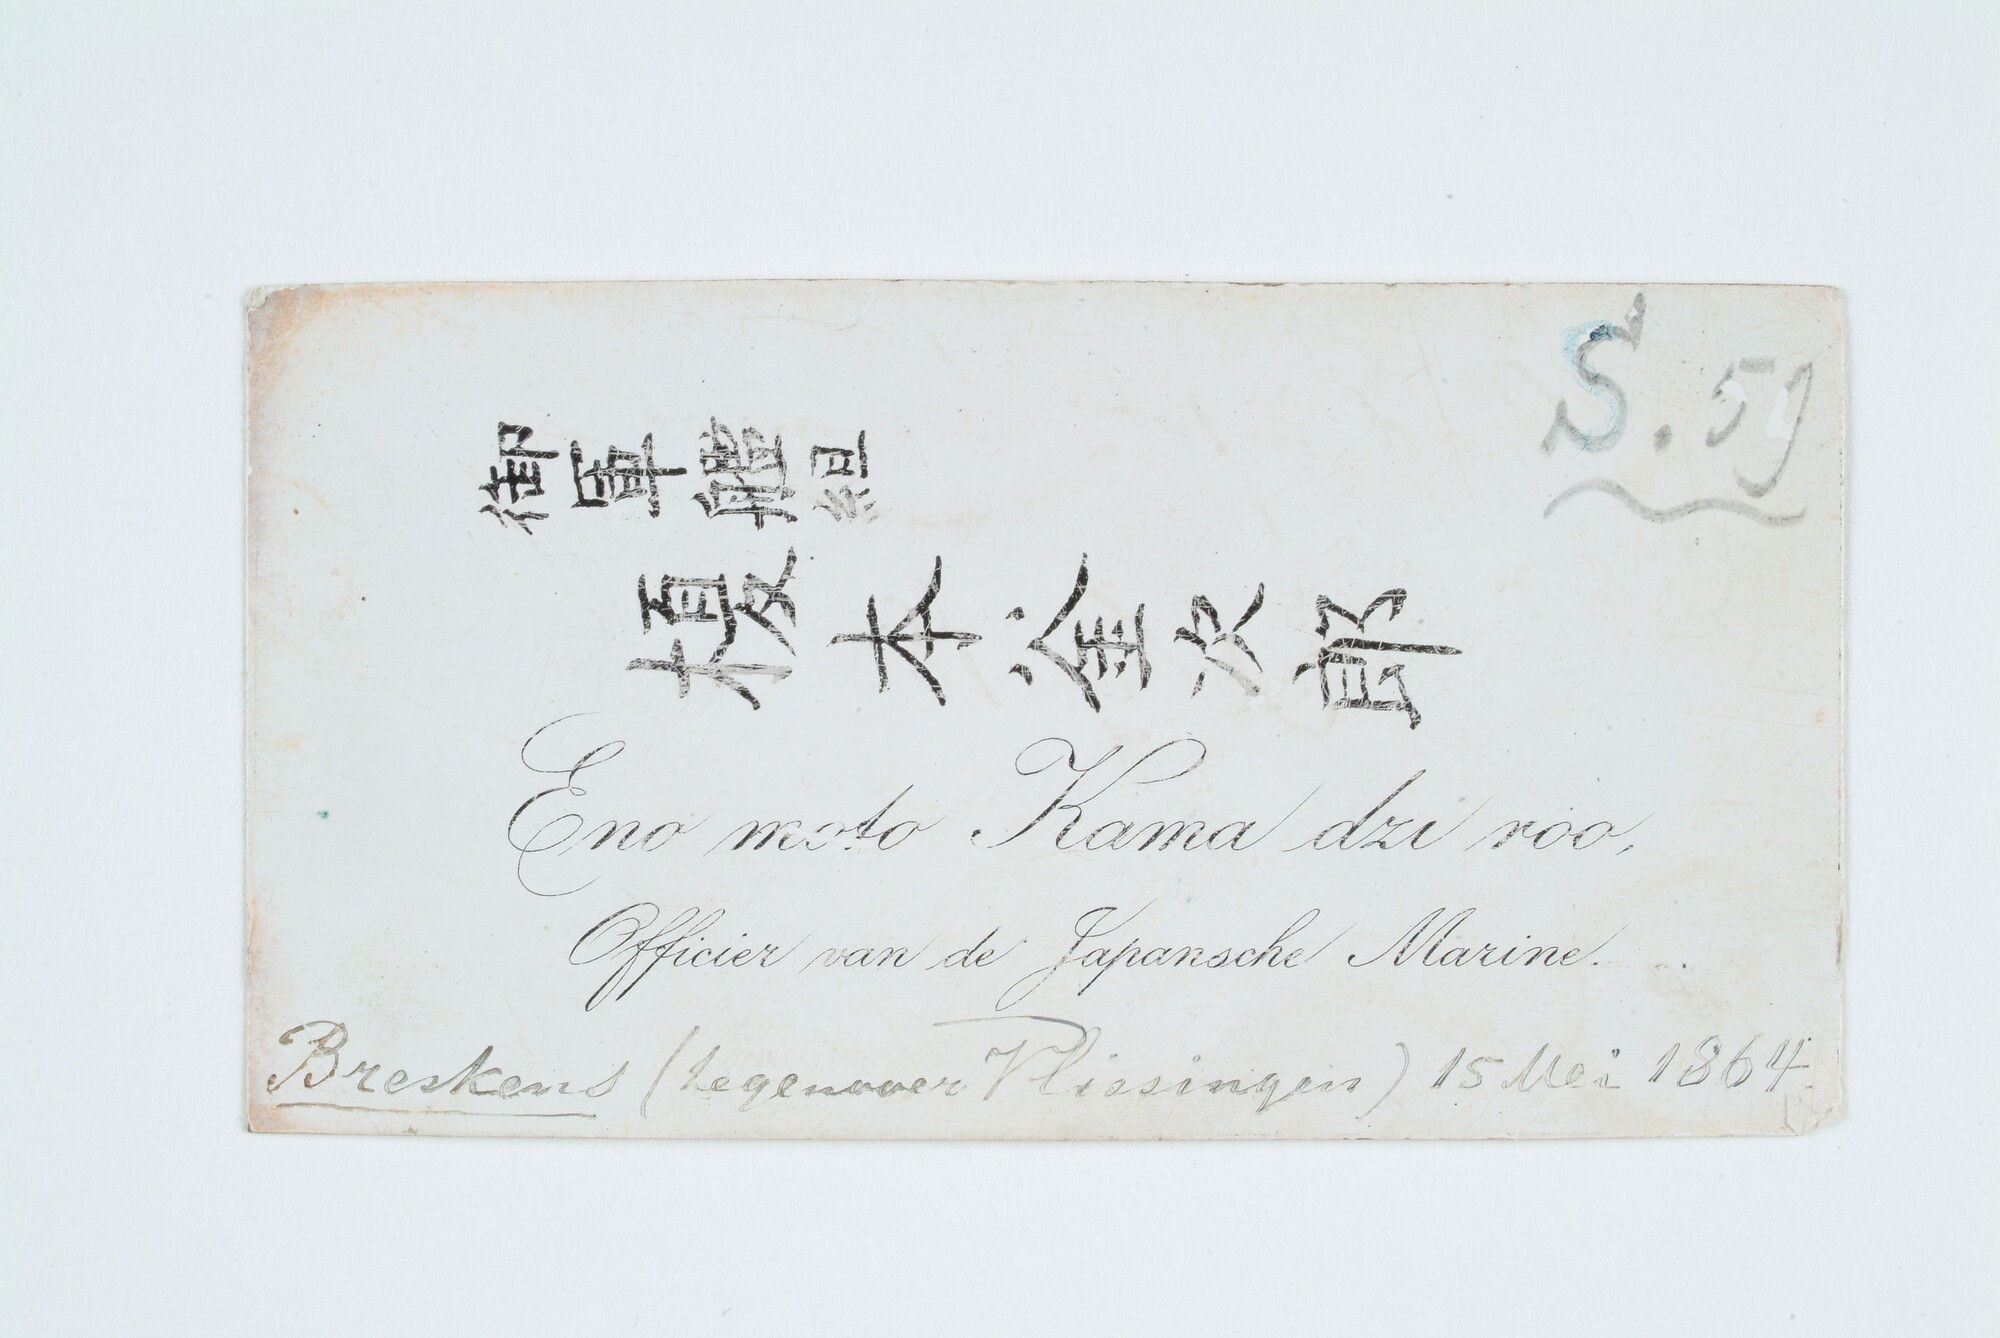 S. 59
御軍艦組
榎本釜次郎
Eno moto Kama dzi roo,
Officier van de Japansche Marine.
Breskens (tegenover Vlissingen) 15 Mei 1864